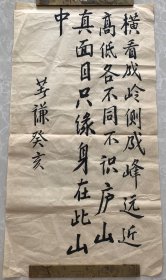 横看成岭侧成峰远近
高低各不同不识庐山
真面目只缘身在此山
中
癸亥